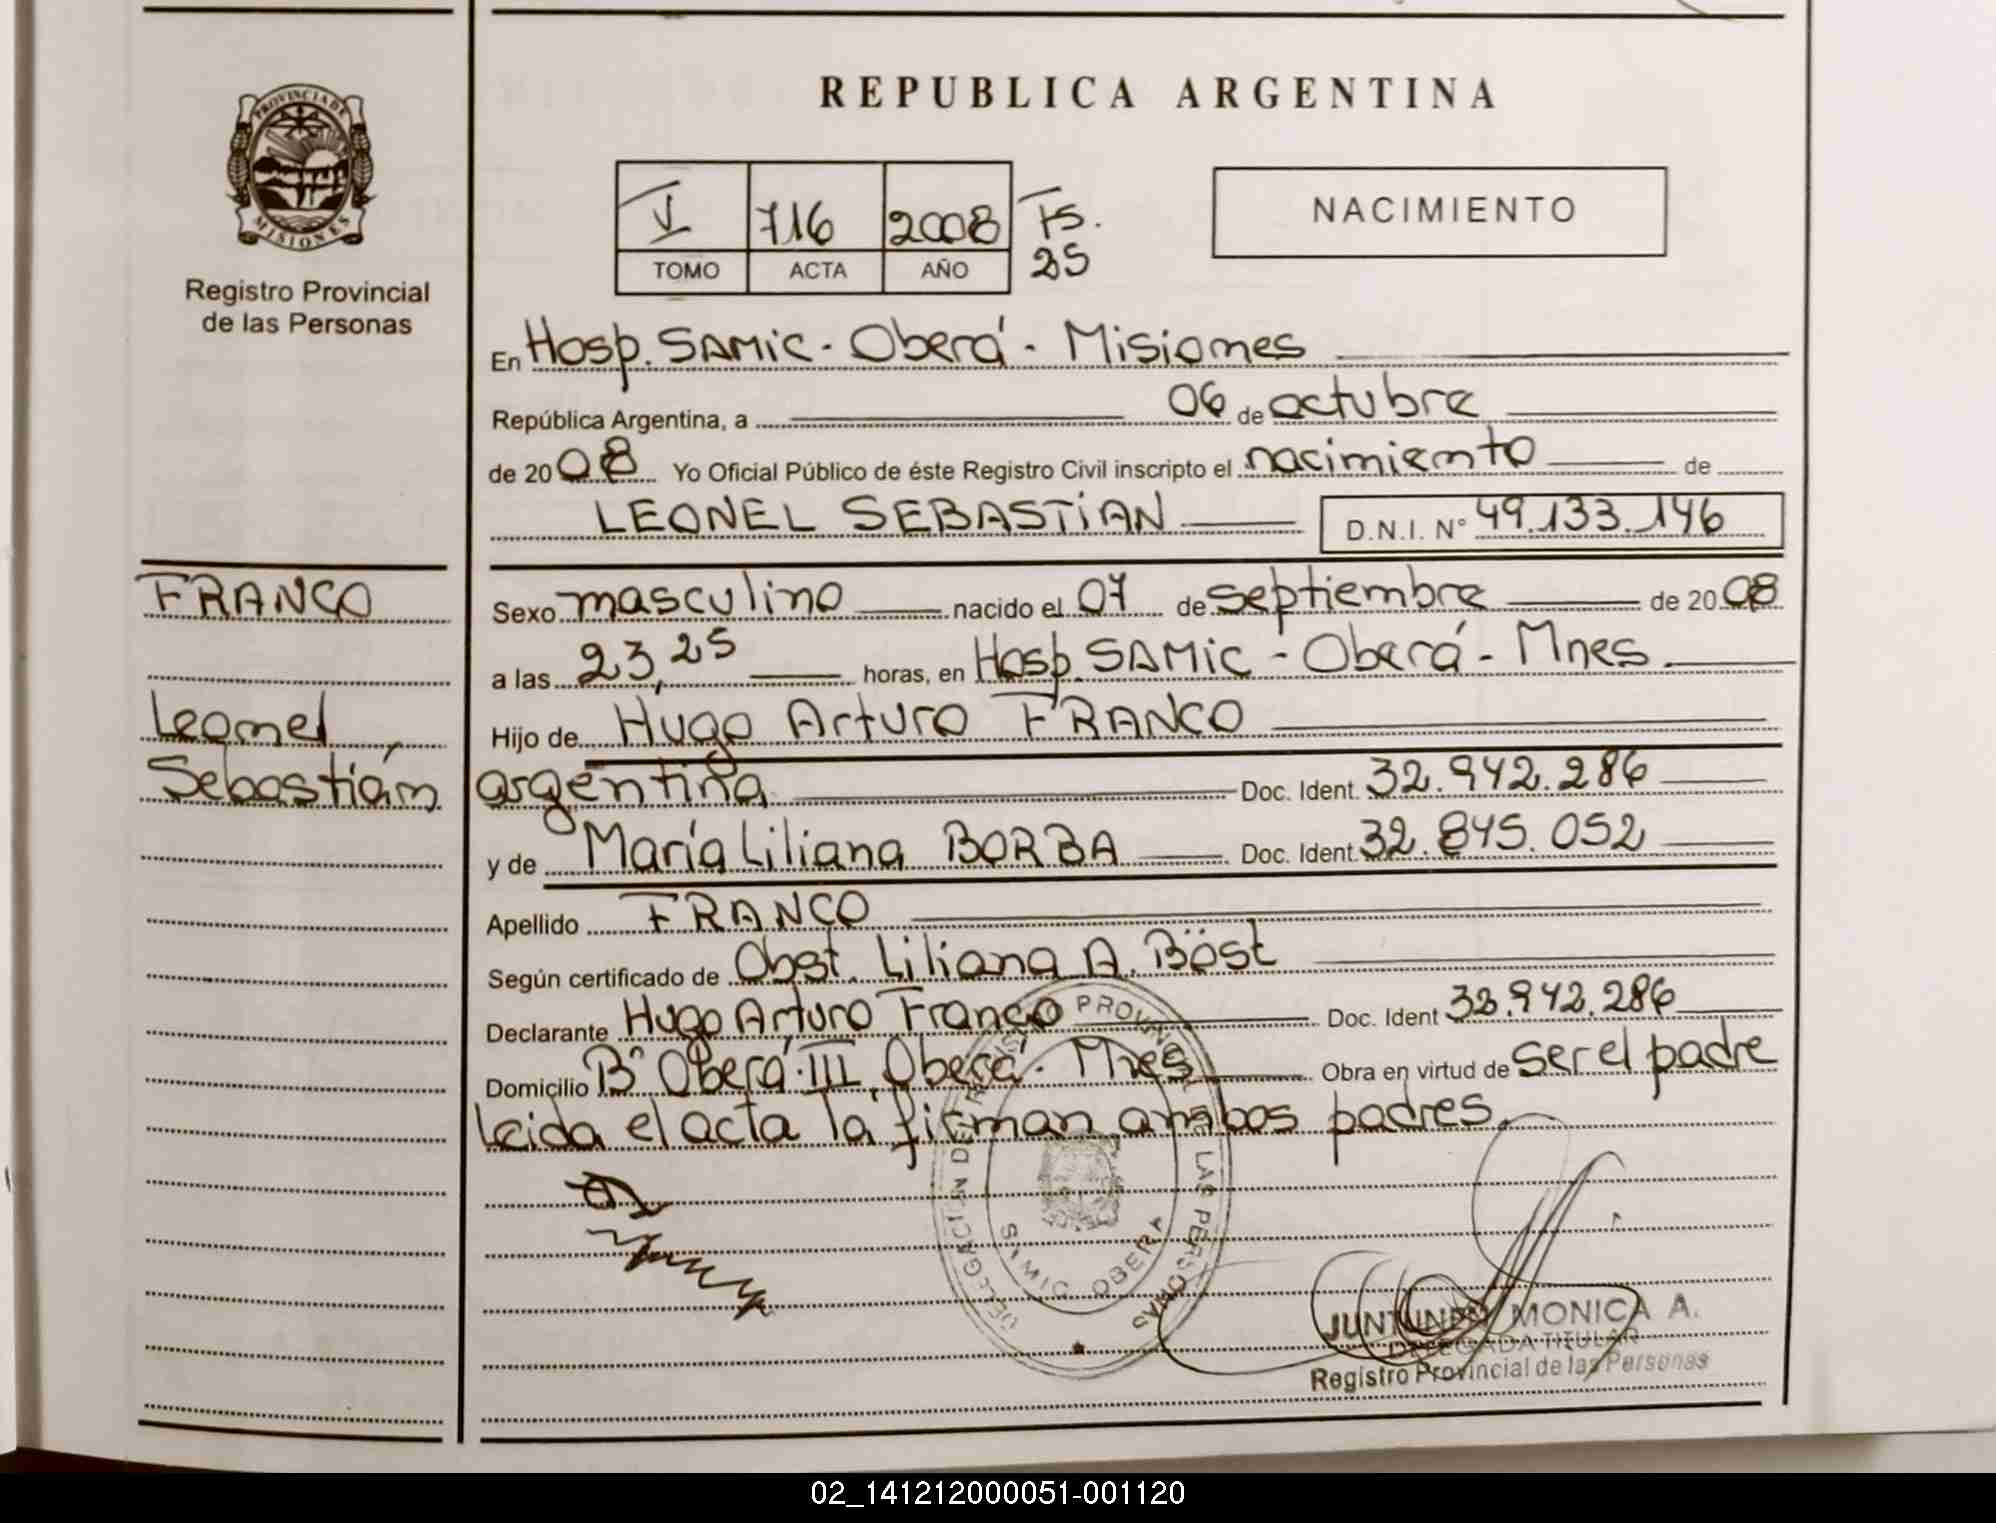 REPUBLICA ARGENTINA
PROVINCIA DE
MISIONES
Registro Provincial
de las Personas
V 716 2008 TS.
25
TOMO ACTA AÑO
NACIMIENTO
En Hosp. SAMIC - Oberá - Misiones
República Argentina, a 06 de octubre
de 2008 Yo Oficial Público de éste Registro Civil inscripto el nacimiento de
LEONEL SEBASTIAN D.N.I. N° 49.133.146
FRANCO
Leonel
Sebastián
Sexo masculino nacido el 07 de septiembre de 2008
a las 23,25 horas, en Hosp. SAMIC - Oberá - Mnes
Hijo de Hugo Arturo FRANCO
argentina Doc. Ident. 32.942.286
y de María Liliana BORBA Doc. Ident. 32.845.052
Apellido FRANCO
Según certificado de Obst. Liliana A. Böst
Declarante Hugo Arturo Franco Doc. Ident 32.942.286
Domicilio B° Oberá III, Oberá - Mnes Obra en virtud de ser el padre
Leida el acta la firman ambos padres.
DELEGACION DE PROVINCIAL LAS PERSONAS
SAMIC OBERA
MONICA A.
DELEGADA TITULAR
Registro Provincial de las Personas
02_141212000051-001120